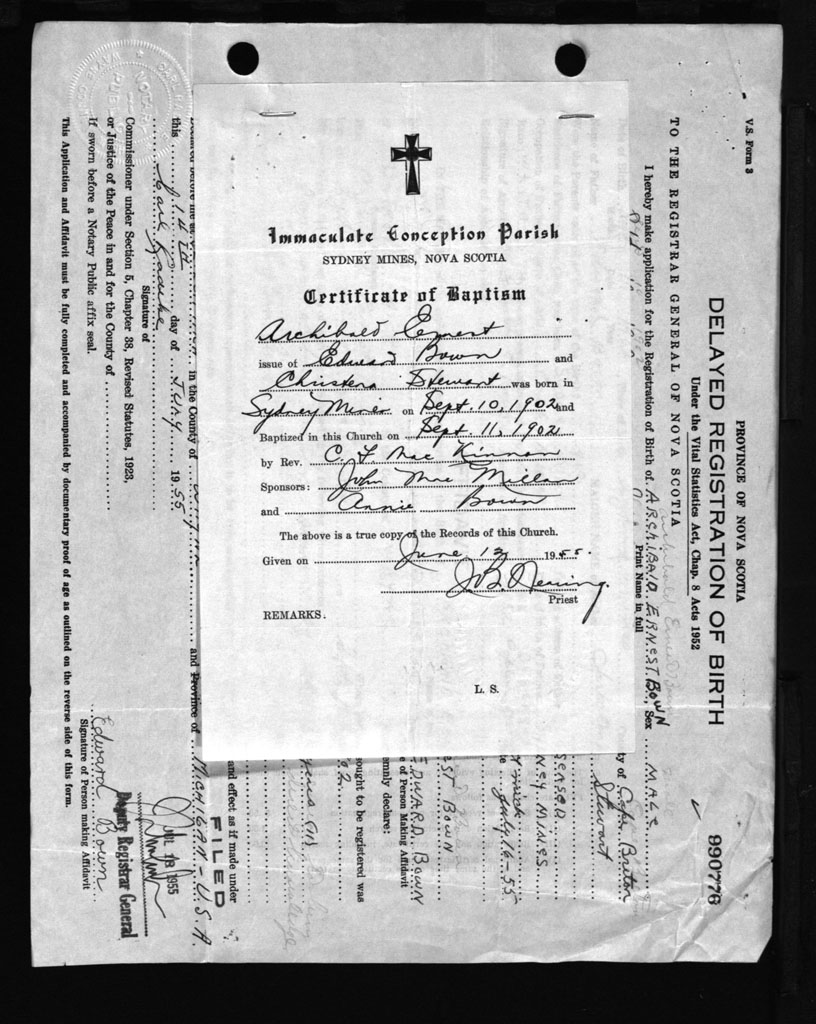 Immaculate Conception Parish
SYDNEY MINES, NOVA SCOTIA
Certificate of Baptism
Archibald Ernest
issue of Edward Bown and
Christena Stewart was born in
Sydney Mines on Sept. 10, 1902 and
Baptized in this Church on Sept. 11, 1902
by Rev. C. F. Mac Kinnon
Sponsors: John Mac Millan
and Annie Bown
The above is a true copy of the Records of this Church.
Given on June 12, 1955.
Priest
REMARKS:
L. S.
V.S. Form 3
PROVINCE OF NOVA SCOTIA
DELAYED REGISTRATION OF BIRTH
990776
Under the Vital Statistics Act, Chap. 8 Acts 1952
TO THE REGISTRAR GENERAL OF NOVA SCOTIA
I hereby make application for the Registration of Birth of ARCHIBALD ERNEST BOWN, Sex MALE
Print Name in full
ty of Cape Breton
Stewart
NEY MINES
July 16-55
EST BOWN
EDWARD BOWN
e of Person Making Affidavit
emnly declare:
ought to be registered was
and effect as if made under
FILED
in the County of
and Province of MICHIGAN - U.S.A.
this day of July 1955
JUL 18 1955
Deputy Registrar General
Signature of
Commissioner under Section 5, Chapter 38, Revised Statutes, 1923,
or Justice of the Peace in and for the County of
If sworn before a Notary Public affix seal.
Edward Bown
Signature of Person making Affidavit
This Application and Affidavit must be fully completed and accompanied by documentary proof of age as outlined on the reverse side of this form.